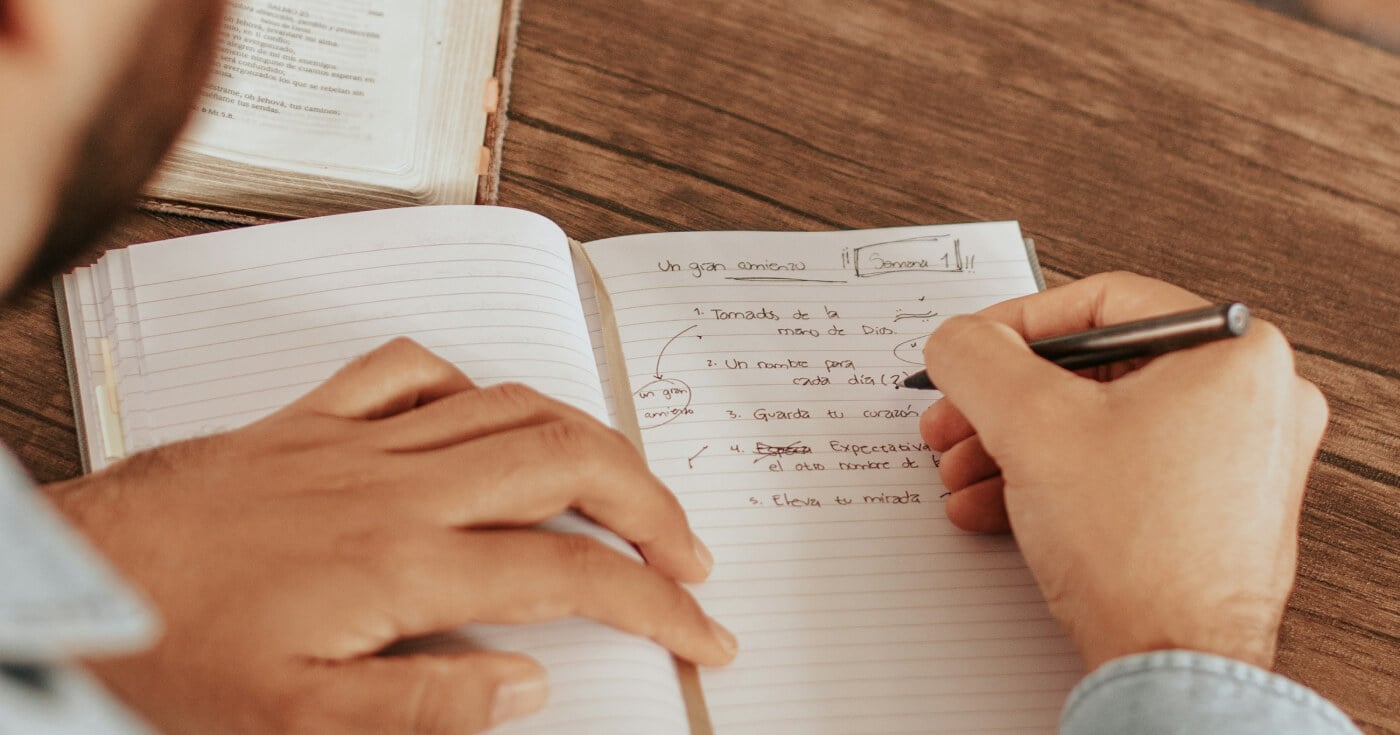 SALMO 25
dirección, perdón y protección
oh Jehová, levantaré mi alma.
mío, en ti confío;
yo avergonzado,
alegren de mí mis enemigos.
mente ninguno de cuantos esperan en
será confundido;
avergonzados los que se rebelan sin
usa.
éstrame, oh Jehová, tus caminos;
éñame tus sendas.
Un gran amienzo
!! Semana 1 !!
1. Tomados de la
mano de Dios.
2. Un nombre para
cada día (2)
un gran
amienzo
3. Guarda tu corazón
4. Expectativa
el otro nombre de l
5. Eleva tu mirada